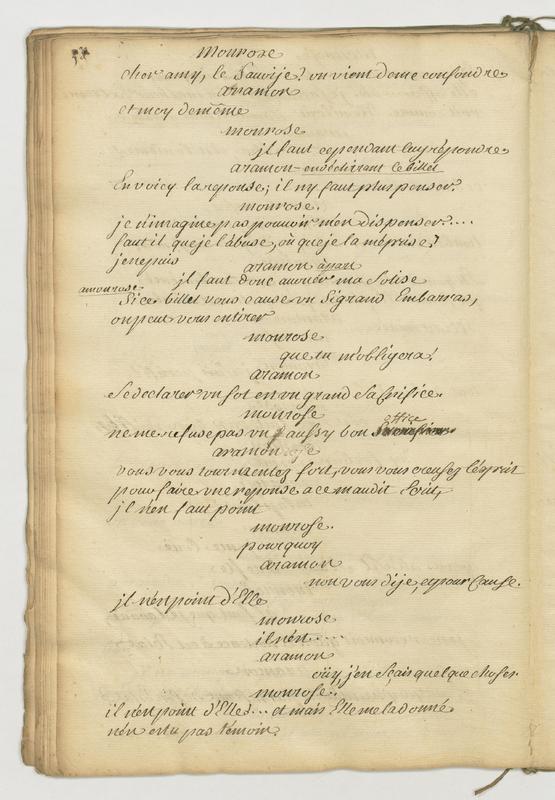 monrose
cher amy, le sauroije? on vient de me confondre
aramon
et moy de même
monrose
il faut cependant luy répondre
aramon en déchirant le billet
En voicy la reponse; il n'y faut plus penser.
monrose.
je n'imagine pas pouvoir m'en dispenser....
faut il que je l'abuse, où que je la méprise?
je ne puis
aramon àpart
il faut donc avoüer ma sotise
amonrose
Si ce billet vous cause un si grand Embarras,
on peut vous en tirer
monrose
que tu m'obligera!
aramon
se declarer un sot est un grand sacrifice.
monrose
ne me refuse pas un aussy bon office
aramon
vous vous tourmentez fort, vous vous creusez l'esprit
pour faire une reponse a ce maudit Ecrit,
il n'en faut point
monrose.
pourquoy
aramon
non vous dije, et pour Cause.
il n'est point d'Elle
monrose
il n'est....
aramon
oüy, j'en sçais quelque chose.
monrose.
il n'est point d'Elle?... et mais Elle me la donné
n'en es tu pas témoin